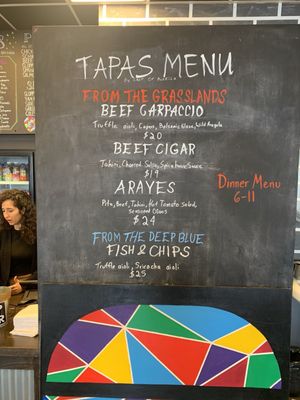 TAPAS MENU
FROM THE GRASSLANDS
BEEF CARPACCIO
Truffle aioli, Capers, Balsamic Glaze, Wild Arugula
$20
BEEF CIGAR
Tahini, Charred Salsa, Spicy House Sauce
$19
ARAYES
Pita, Beef, Tahini, Hot Tomato Salad,
Seasonal Olives
$24
Dinner Menu
6-11
FROM THE DEEP BLUE
FISH & CHIPS
Truffle aioli, Sriracha aioli
$25